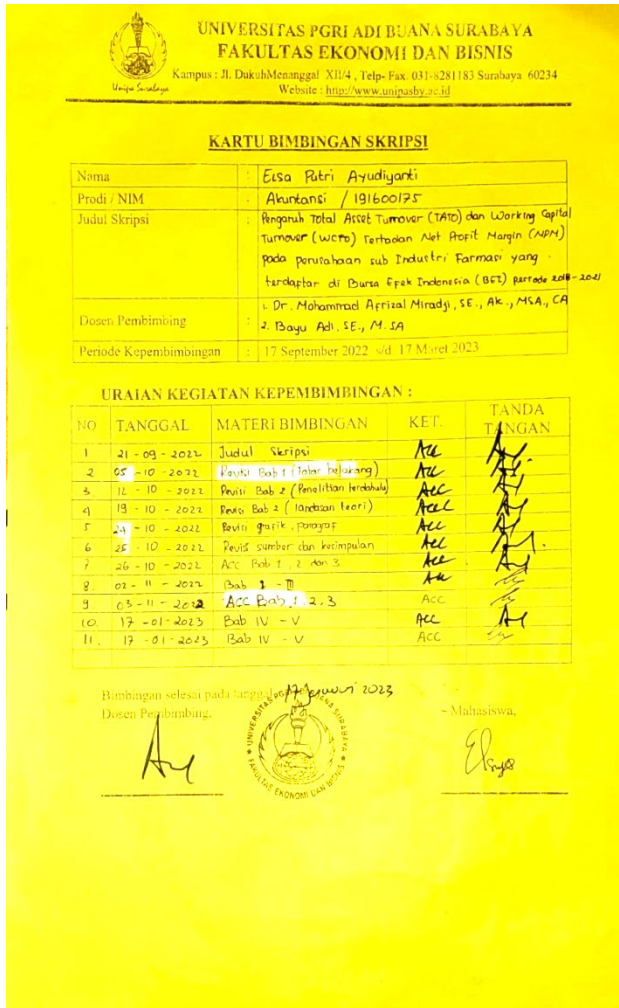 UNIVERSITAS PGRI ADI BUANA SURABAYA
FAKULTAS EKONOMI DAN BISNIS
Kampus : Jl. DukuhMenanggal XII/4 , Telp- Fax. 031-8281183 Surabaya 60234
Website : http://www.unipasby.ac.id
Unipa Surabaya
KARTU BIMBINGAN SKRIPSI
Nama : Elsa Putri Ayudiyanti
Prodi / NIM : Akuntansi / 191600175
Judul Skripsi : Pengaruh Total Asset Turnover (TATO) dan Working Capital
Turnover (WCTO) Terhadap Net Profit Margin (NPM)
pada perusahaan sub Industri Farmasi yang
terdaftar di Bursa Efek Indonesia (BEI) periode 2018-2021
Dosen Pembimbing : 1. Dr. Mohammad Afrizal Miradji, SE., Ak., MSA., CA
2. Bayu Adi, SE., M.SA
Periode Kepembimbingan : 17 September 2022 s/d 17 Maret 2023
URAIAN KEGIATAN KEPEMBIMBINGAN :
NO TANGGAL MATERI BIMBINGAN KET. TANDA TANGAN
1 21 - 09 - 2022 Judul Skripsi Acc
2 05 - 10 - 2022 Revisi Bab 1 (latar belakang) Acc
3 12 - 10 - 2022 Revisi Bab 2 (Penelitian terdahulu) Acc
4 19 - 10 - 2022 Revisi Bab 2 (landasan teori) Acc
5 24 - 10 - 2022 Revisi grafik, paragraf Acc
6 25 - 10 - 2022 Revisi sumber dan kesimpulan Acc
7 26 - 10 - 2022 ACC Bab 1, 2 dan 3 Acc
8. 02 - 11 - 2022 Bab I - III Acc
9 03 - 11 - 2022 ACC Bab 1, 2, 3 ACC
10. 17 - 01 - 2023 Bab IV - V Acc
11. 17 - 01 - 2023 Bab IV - V ACC
Bimbingan selesai pada tanggal, 17 Januari 2023
Dosen Pembimbing, Mahasiswa,
UNIVERSITAS PGRI ADI BUANA SURABAYA
FAKULTAS EKONOMI DAN BISNIS